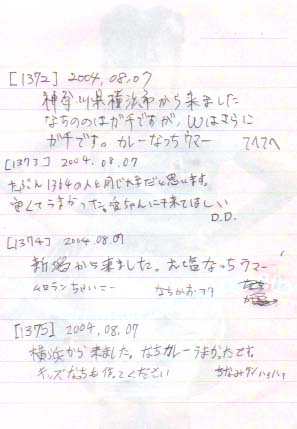 [1372] 2004.08.07
神奈川県横浜市から来ました
なちののはガチですが、Wはさらに
ガチです。カレーなっちウマー
てへてへ
[1373] 2004.08.07
たぶん1364の人と同じ大子だと思います。
安くてうまかった。ちゃんに来てほしい
D.D.
[1374] 2004.08.07
新潟から来ました。お塩なっちウマー
ムロランちゃいこー
なちかおヲタ
[1375] 2004.08.07
横浜から来ました。なちカレーうまかったです。
キッズなっちも作ってください
ちなみケンハァハァ